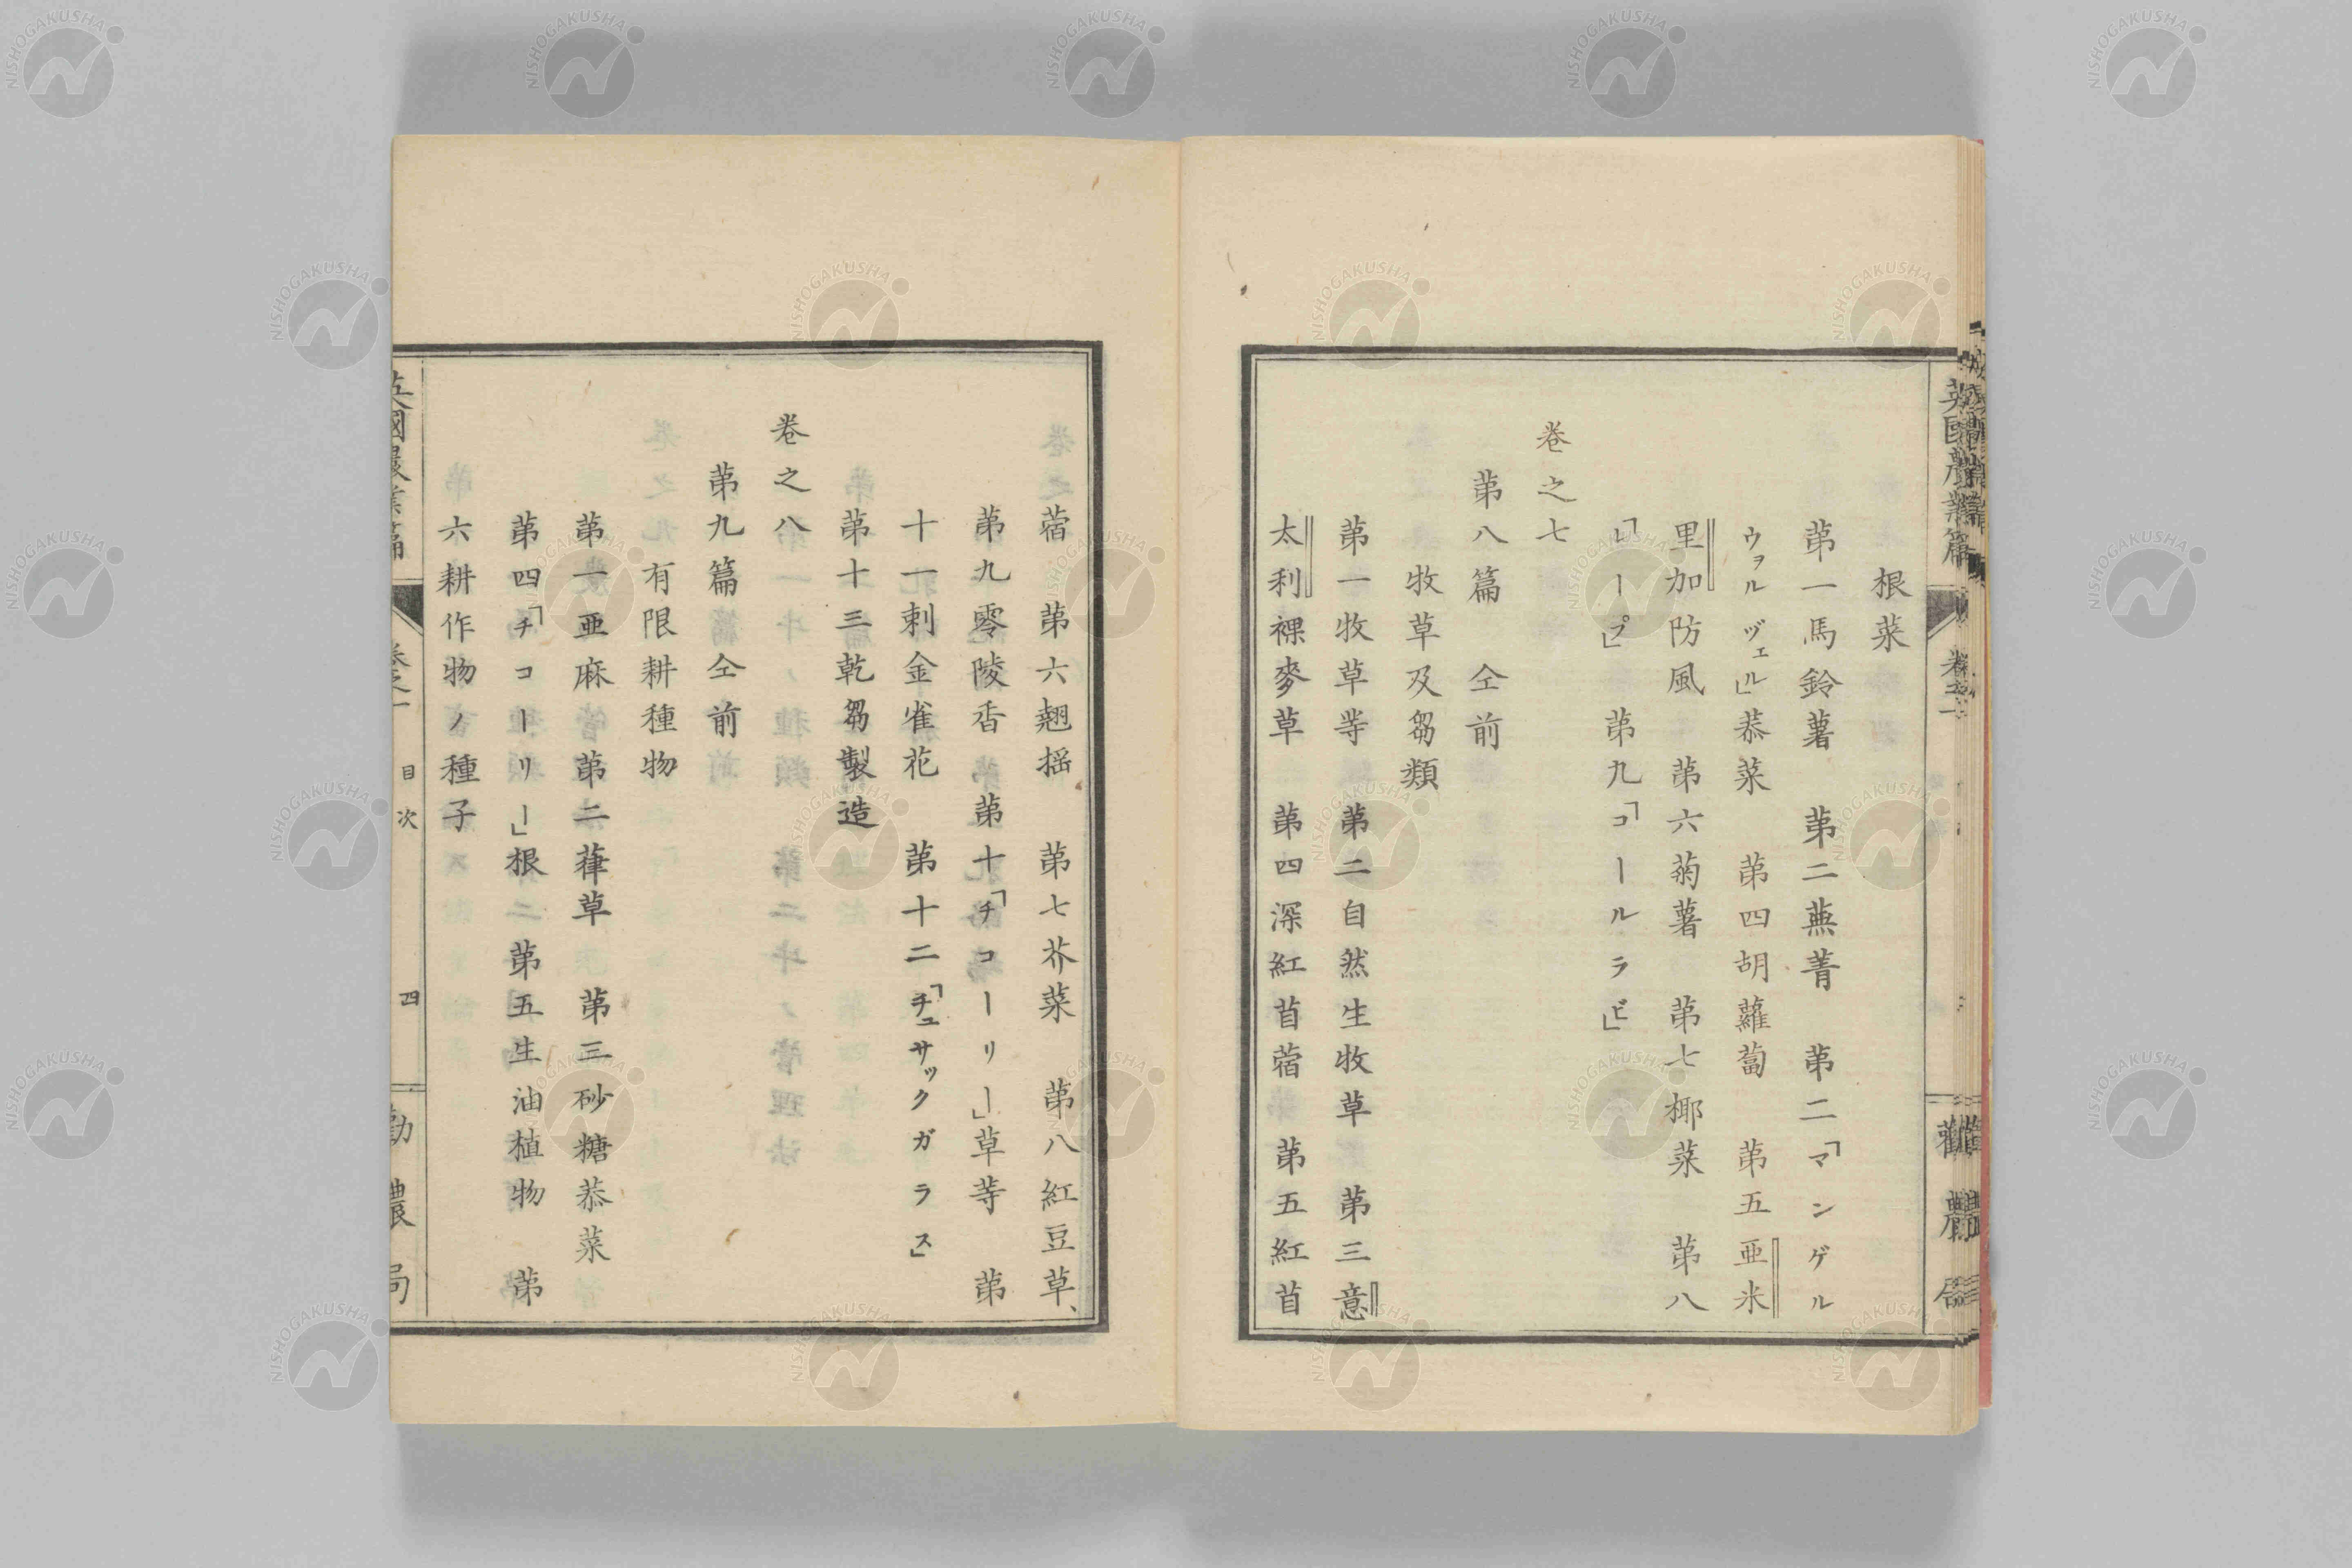 根菜
第一馬鈴薯　第二蕪菁　第二「マンゲル
ウヲルヅェル」恭菜　第四胡蘿蔔　第五亜米
里加防風　第六菊薯　第七揶菜　第八
「レープ」　第九「コールラビ」
巻之七
第八篇　仝前
牧草及芻類
第一牧草等　第二自然生牧草　第三意
太利裸麥草　第四深紅苜蓿　第五紅苜
蓿　第六翹揺　第七芥菜　第八紅豆草、
第九零陵香　第十「チコーリー」草等　第
十一剌金雀花　第十二「チュサックガラス」
第十三乾芻製造
巻之八
第九篇仝前
有限耕種物
第一亜麻　第二葎草　第三砂糖恭菜
第四「チコーリー」根　第五生油植物　第
六耕作物ノ種子
英國農業篇
巻之一
目次
四
勸農局
NISHOGAKUSHA